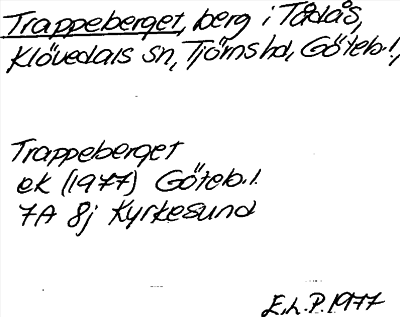 Trappeberget, berg i Tådås,
Klövedals sn, Tjörns hd, Göteb.l,
Trappeberget
ek (1977) Göteb.l.
7A 8j Kyrkesund
E.L.P. 1977